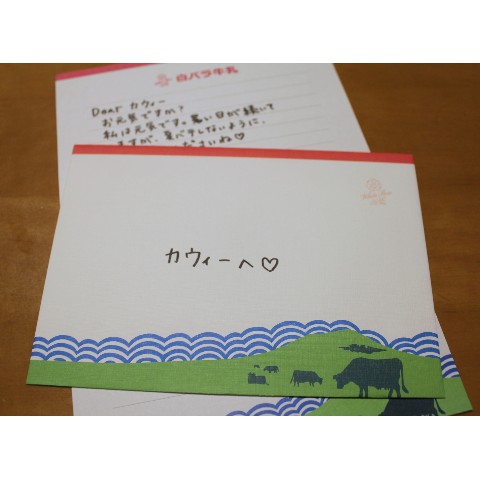 白バラ牛乳
Dear カウィー
お元気ですか?
私は元気です。暑い日が続いて
ますが、夏バテしないように、
ださいね♡
カウィーへ♡